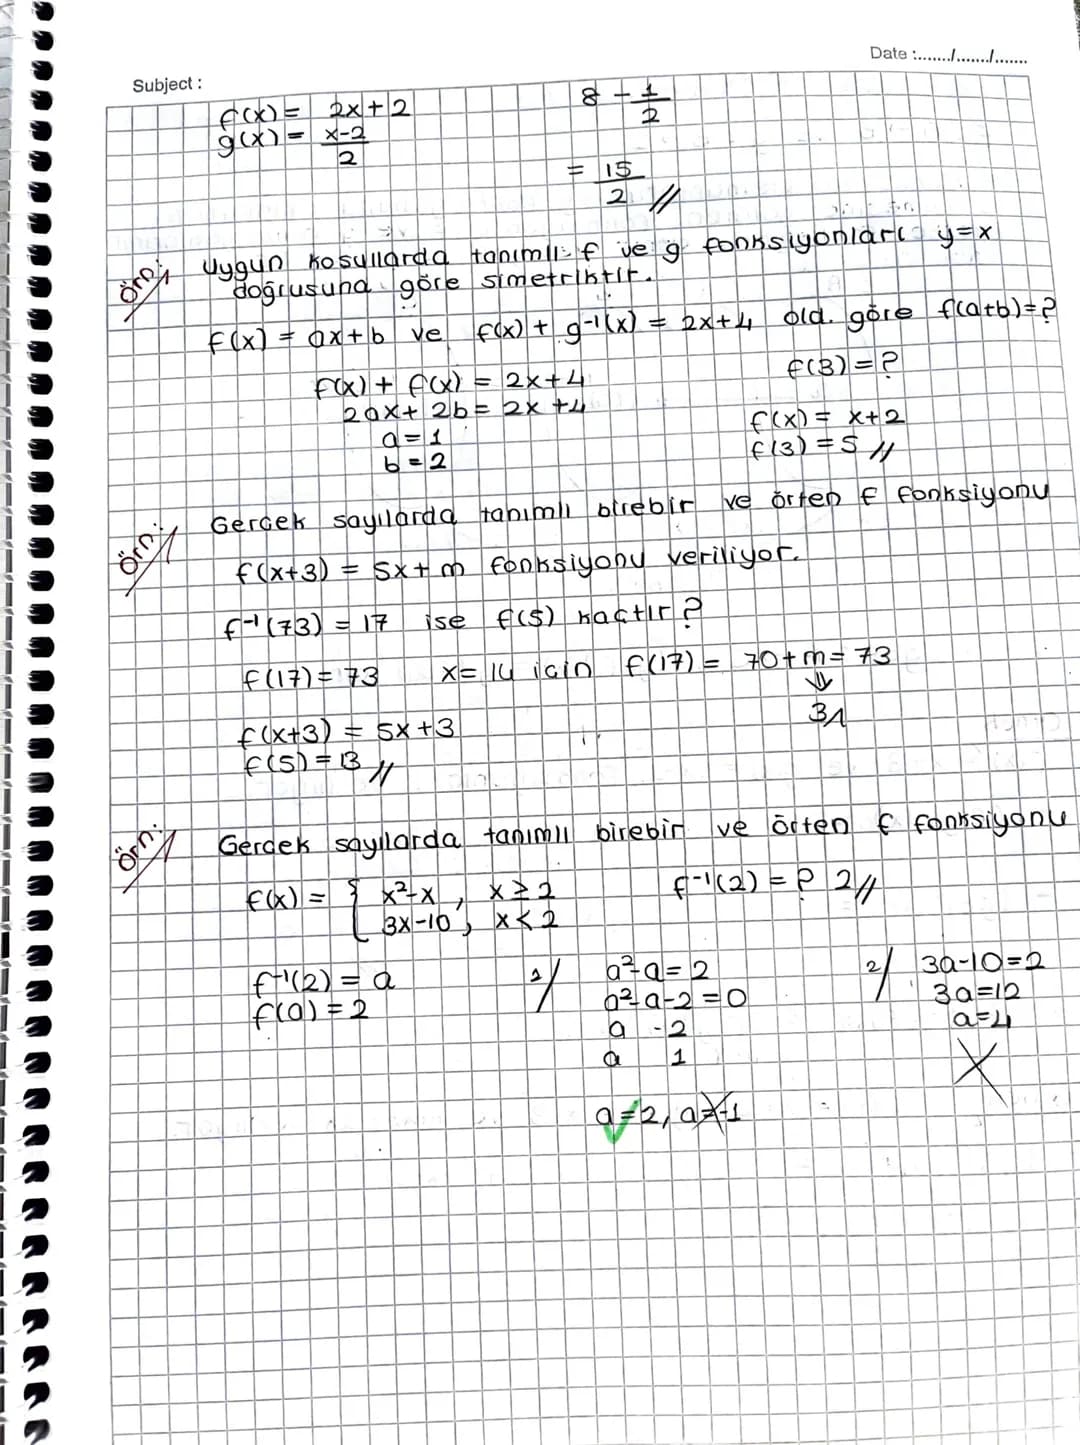 Date :......../......../........
Subject :
f(x) = 2x+2
g(x) = x-2
2
8 - 1
2
= 15
2 //
Örn; Uygun koşullarda tanımlı f ve g fonksiyonları y=x
doğrusuna göre simetriktir.
f(x) = ax+b ve f(x) + g⁻¹(x) = 2x+4 old. göre f(a+b)=?
f(x) + f(x) = 2x+4
2ax+ 2b = 2x +4
a=1
b=2
f(3)=?
f(x) = x+2
f(3) = 5 //
Örn; Gerçek sayılarda tanımlı birebir ve örten f fonksiyonu
f(x+3) = 5x+m fonksiyonu veriliyor.
f⁻¹(73) = 17 ise f(5) kaçtır?
f(17)=73 x=14 için f(17) = 70+m=73
⇓
3
f(x+3) = 5x+3
f(5)=13 //
Örn; Gerçek sayılarda tanımlı birebir ve örten f fonksiyonu
f(x) = { x²-x , x≥2
3x-10 , x<2
f⁻¹(2) = ? 2//
f⁻¹(2) = a
f(a) = 2
1/ a²-a=2
a²-a-2=0
a -2
a 1
a=2, a=-1
2/ 3a-10=2
3a=12
a=4
X